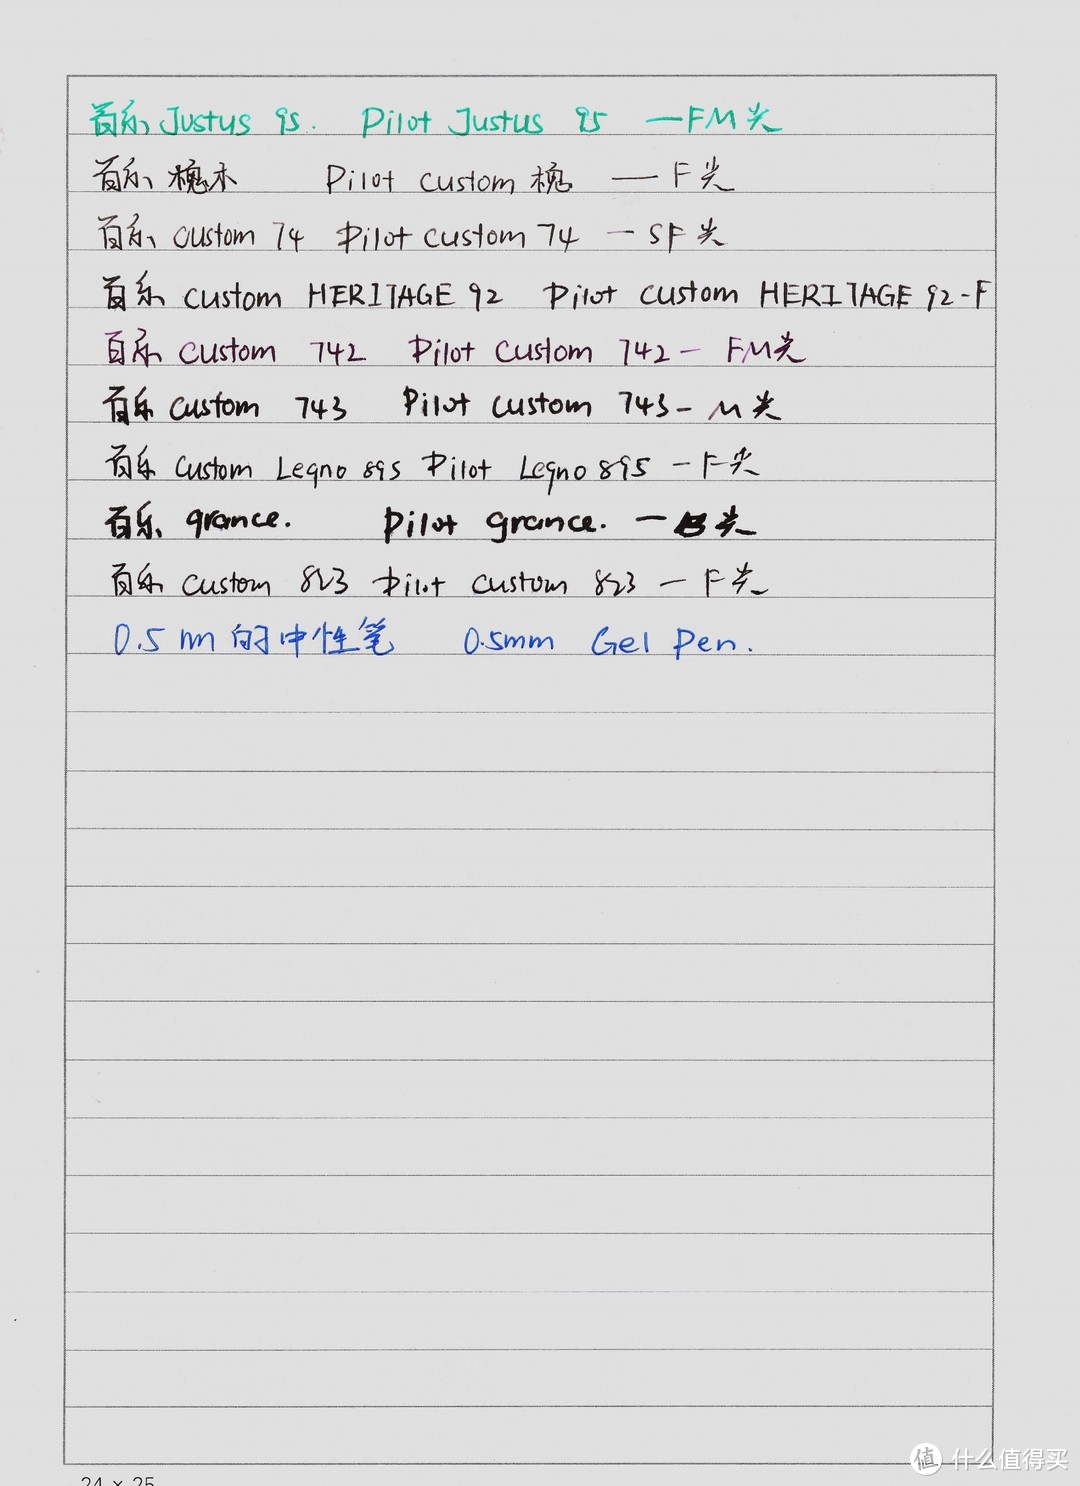 百乐 Justus 95. Pilot Justus 95 — FM尖
百乐 槐木 Pilot custom 槐 — F尖
百乐 custom 74 Pilot custom 74 — SF尖
百乐 custom HERITAGE 92 Pilot custom HERITAGE 92-F
百乐 custom 742 Pilot custom 742 — FM尖
百乐 custom 743 Pilot custom 743 — M尖
百乐 custom Legno 895 Pilot Legno 895 — F尖
百乐 grance. Pilot grance. — B尖
百乐 custom 823 Pilot custom 823 — F尖
0.5 m 的中性笔 0.5mm Gel Pen.
24 × 25
值 什么值得买